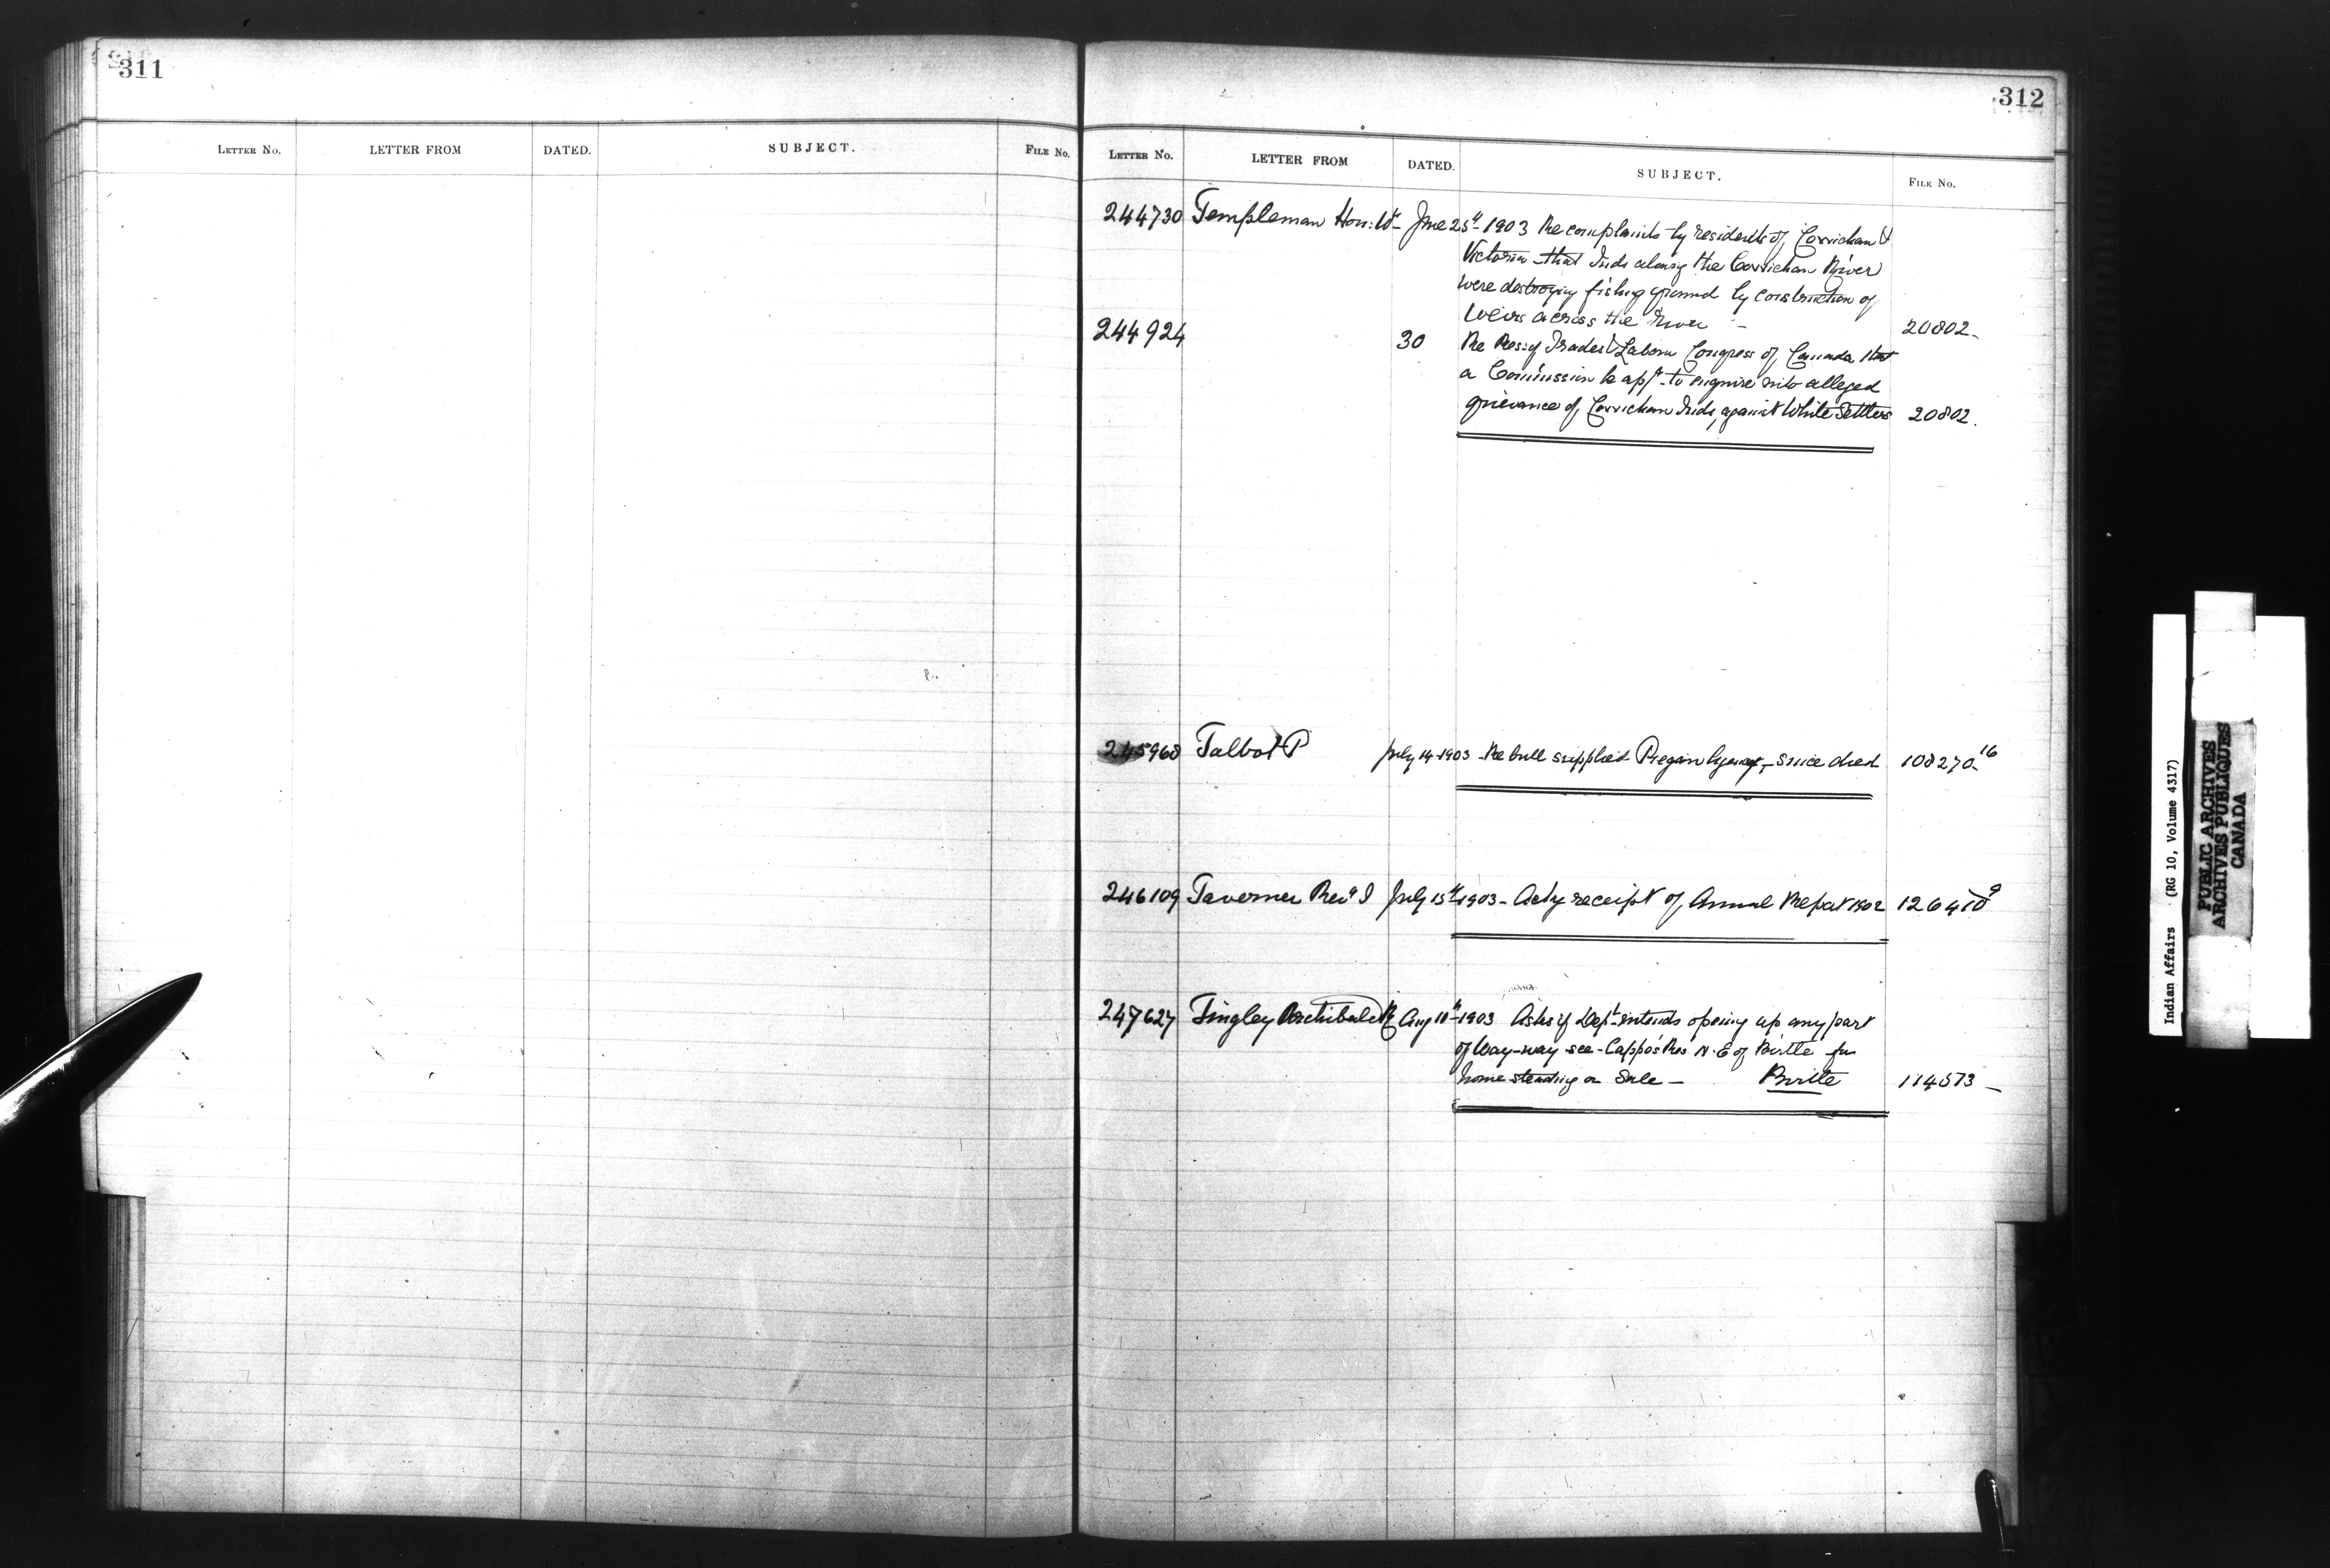 311
LETTER NO. LETTER FROM DATED. SUBJECT. FILE NO.
312
LETTER NO. LETTER FROM DATED. SUBJECT. FILE NO.
244730 Templeman Hon: Wm June 25th 1903 Re complaints by residents of Cowichan &
Victoria that Inds along the Cowichan River
were destroying fishing ground by construction of
weirs across the river - 20802-
244924 30 Re Res: of Trades & Labour Congress of Canada that
a Commission be apt to enquire into alleged
grievance of Cowichan Inds, against White Settlers 20802.
245968 Talbot P July 14-1903 - Re bull supplied Piegan Agency - since died 108270-16
246109 Taverner Revd J July 15th 1903 - Ackg receipt of Annual Report 1902 126410 9
247627 Tingley Archibald Aug 10th 1903 Asks if Dept intends opening up any part
of Way-way-see-Cappo's Res N.E of Birtle for
homesteading or Sale - Birtle 114573 -
Indian Affairs (RG 10, Volume 4317)
PUBLIC ARCHIVES
ARCHIVES PUBLIQUES
CANADA